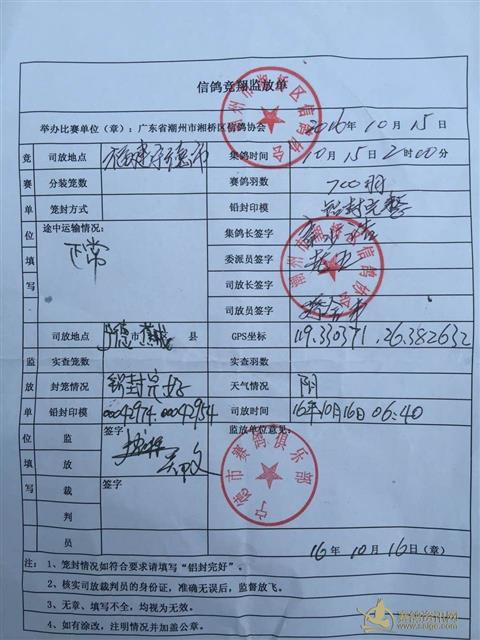 信鸽竞翔监放单
举办比赛单位（章）：广东省潮州市湘桥区信鸽协会 2016年10月15日
竞赛单位填写
司放地点 福建宁德市 集鸽时间 10月15日21时00分
分装笼数 赛鸽羽数 700羽
笼封方式 铅封印模 铅封完整
途中运输情况： 正常
集鸽长签字
委派员签字
司放长签字
司放员签字
潮州市湘桥区信鸽协会
潮州市湘桥区信鸽协会
监放单位填写
司放地点 宁德市蕉城区 县 GPS坐标 119.330371,26.382632
实查笼数 实查羽数
封笼情况 铅封完好 天气情况 阴
铅封印模 00042974.00042954 司放时间 16年10月16日06:40
监放 签字 监放单位意见：
裁判员 签字
宁德市赛鸽俱乐部
16年10月16日（章）
注：1、笼封情况如符合要求请填写“铅封完好”。
2、核实司放裁判员的身份证，准确无误后，监督放飞。
3、无章、填写不全，均视为无效。
4、如有涂改，注明情况并加盖公章。